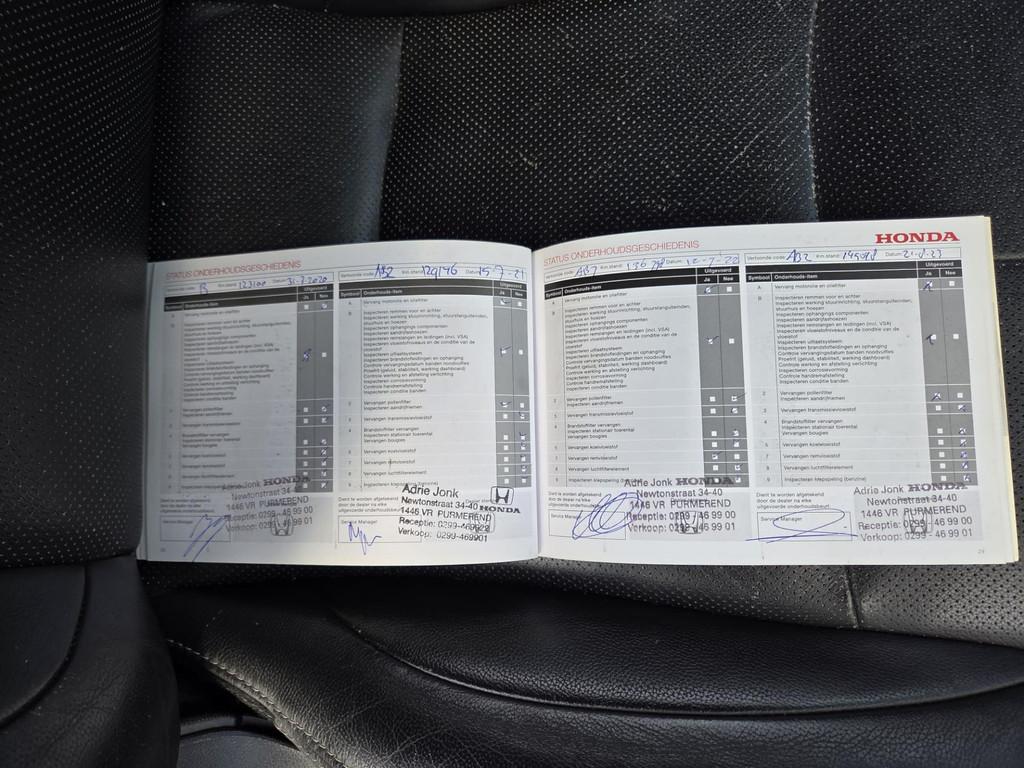 STATUS ONDERHOUDSGESCHIEDENIS
Vertoonde code: B Km.stand: Datum: 31-7-2020
Onderhouds-item
Uitgevoerd
Ja Nee
Vervang motorolie en oliefilter
Vervangen pollenfilter
Inspecteren aandrijfriemen
Vervangen transmissievloeistof
Brandstoffilter vervangen
Inspecteren stationair toerental
Vervangen bougies
Vervangen koelvloeistof
Vervangen remvloeistof
Vervangen luchtfilterelement
Dient te worden afgetekend
door de dealer na elke
uitgevoerde onderhoudsbeurt
Service Manager
Adrie Jonk HONDA
Newtonstraat 34-40
1446 VR PURMEREND
Receptie: 0299 - 46 99 00
Verkoop: 0299 - 46 99 01
Vertoonde code: AB2 Km.stand: 129146 Datum: 15-7-21
Symbool Onderhouds-item
Uitgevoerd
Ja Nee
A Vervang motorolie en oliefilter
B Inspecteren remmen voor en achter
Inspecteren werking stuurinrichting, stuurstanguiteinden,
stuurhuis en hoezen
Inspecteren ophangings componenten
Inspecteren aandrijfashoezen
Inspecteren remslangen en leidingen (incl. VSA)
Inspecteren vloeistofniveaus en de conditie van de
vloeistof
Inspecteren uitlaatsysteem
Inspecteren brandstofleidingen en ophanging
Controle vervangingsdatum banden noodvulfles
Proefrit (geluid, stabiliteit, werking dashboard)
Controle werking en afstelling verlichting
Inspecteren corrosievorming
Controle handremafstelling
Inspecteren conditie banden
2 Vervangen pollenfilter
Inspecteren aandrijfriemen
3 Vervangen transmissievloeistof
4 Brandstoffilter vervangen
Inspecteren stationair toerental
Vervangen bougies
5 Vervangen koelvloeistof
7 Vervangen remvloeistof
8 Vervangen luchtfilterelement
9 Inspecteren klepspeling (benzine)
Dient te worden afgetekend
door de dealer na elke
uitgevoerde onderhoudsbeurt
Service Manager
Adrie Jonk
Newtonstraat 34-40
1446 VR PURMEREND
Receptie: 0299-469929
Verkoop: 0299-469901
HONDA
STATUS ONDERHOUDSGESCHIEDENIS
HONDA
Vertoonde code: Km.stand: Datum:
Symbool Onderhouds-item
Uitgevoerd
Ja Nee
A Vervang motorolie en oliefilter
B Inspecteren remmen voor en achter
Inspecteren werking stuurinrichting, stuurstanguiteinden,
stuurhuis en hoezen
Inspecteren ophangings componenten
Inspecteren aandrijfashoezen
Inspecteren remslangen en leidingen (incl. VSA)
Inspecteren vloeistofniveaus en de conditie van de
vloeistof
Inspecteren uitlaatsysteem
Inspecteren brandstofleidingen en ophanging
Controle vervangingsdatum banden noodvulfles
Proefrit (geluid, stabiliteit, werking dashboard)
Controle werking en afstelling verlichting
Inspecteren corrosievorming
Controle handremafstelling
Inspecteren conditie banden
2 Vervangen pollenfilter
Inspecteren aandrijfriemen
3 Vervangen transmissievloeistof
4 Brandstoffilter vervangen
Inspecteren stationair toerental
Vervangen bougies
5 Vervangen koelvloeistof
7 Vervangen remvloeistof
8 Vervangen luchtfilterelement
9 Inspecteren klepspeling (benzine)
Dient te worden afgetekend
door de dealer na elke
uitgevoerde onderhoudsbeurt
Service Manager
Adrie Jonk HONDA
Newtonstraat 34-40
1446 VR PURMEREND
Receptie: 0299 - 46 99 00
Verkoop: 0299 - 46 99 01
Vertoonde code: AB2 Km.stand: Datum: 21-8-23
Symbool Onderhouds-item
Uitgevoerd
Ja Nee
A Vervang motorolie en oliefilter
B Inspecteren remmen voor en achter
Inspecteren werking stuurinrichting, stuurstanguiteinden,
stuurhuis en hoezen
Inspecteren ophangings componenten
Inspecteren aandrijfashoezen
Inspecteren remslangen en leidingen (incl. VSA)
Inspecteren vloeistofniveaus en de conditie van de
vloeistof
Inspecteren uitlaatsysteem
Inspecteren brandstofleidingen en ophanging
Controle vervangingsdatum banden noodvulfles
Proefrit (geluid, stabiliteit, werking dashboard)
Controle werking en afstelling verlichting
Inspecteren corrosievorming
Controle handremafstelling
Inspecteren conditie banden
2 Vervangen pollenfilter
Inspecteren aandrijfriemen
3 Vervangen transmissievloeistof
4 Brandstoffilter vervangen
Inspecteren stationair toerental
Vervangen bougies
5 Vervangen koelvloeistof
7 Vervangen remvloeistof
8 Vervangen luchtfilterelement
9 Inspecteren klepspeling (benzine)
Dient te worden afgetekend
door de dealer na elke
uitgevoerde onderhoudsbeurt
Service Manager
Adrie Jonk HONDA
Newtonstraat 34-40
1446 VR PURMEREND
Receptie: 0299 - 46 99 00
Verkoop: 0299 - 46 99 01